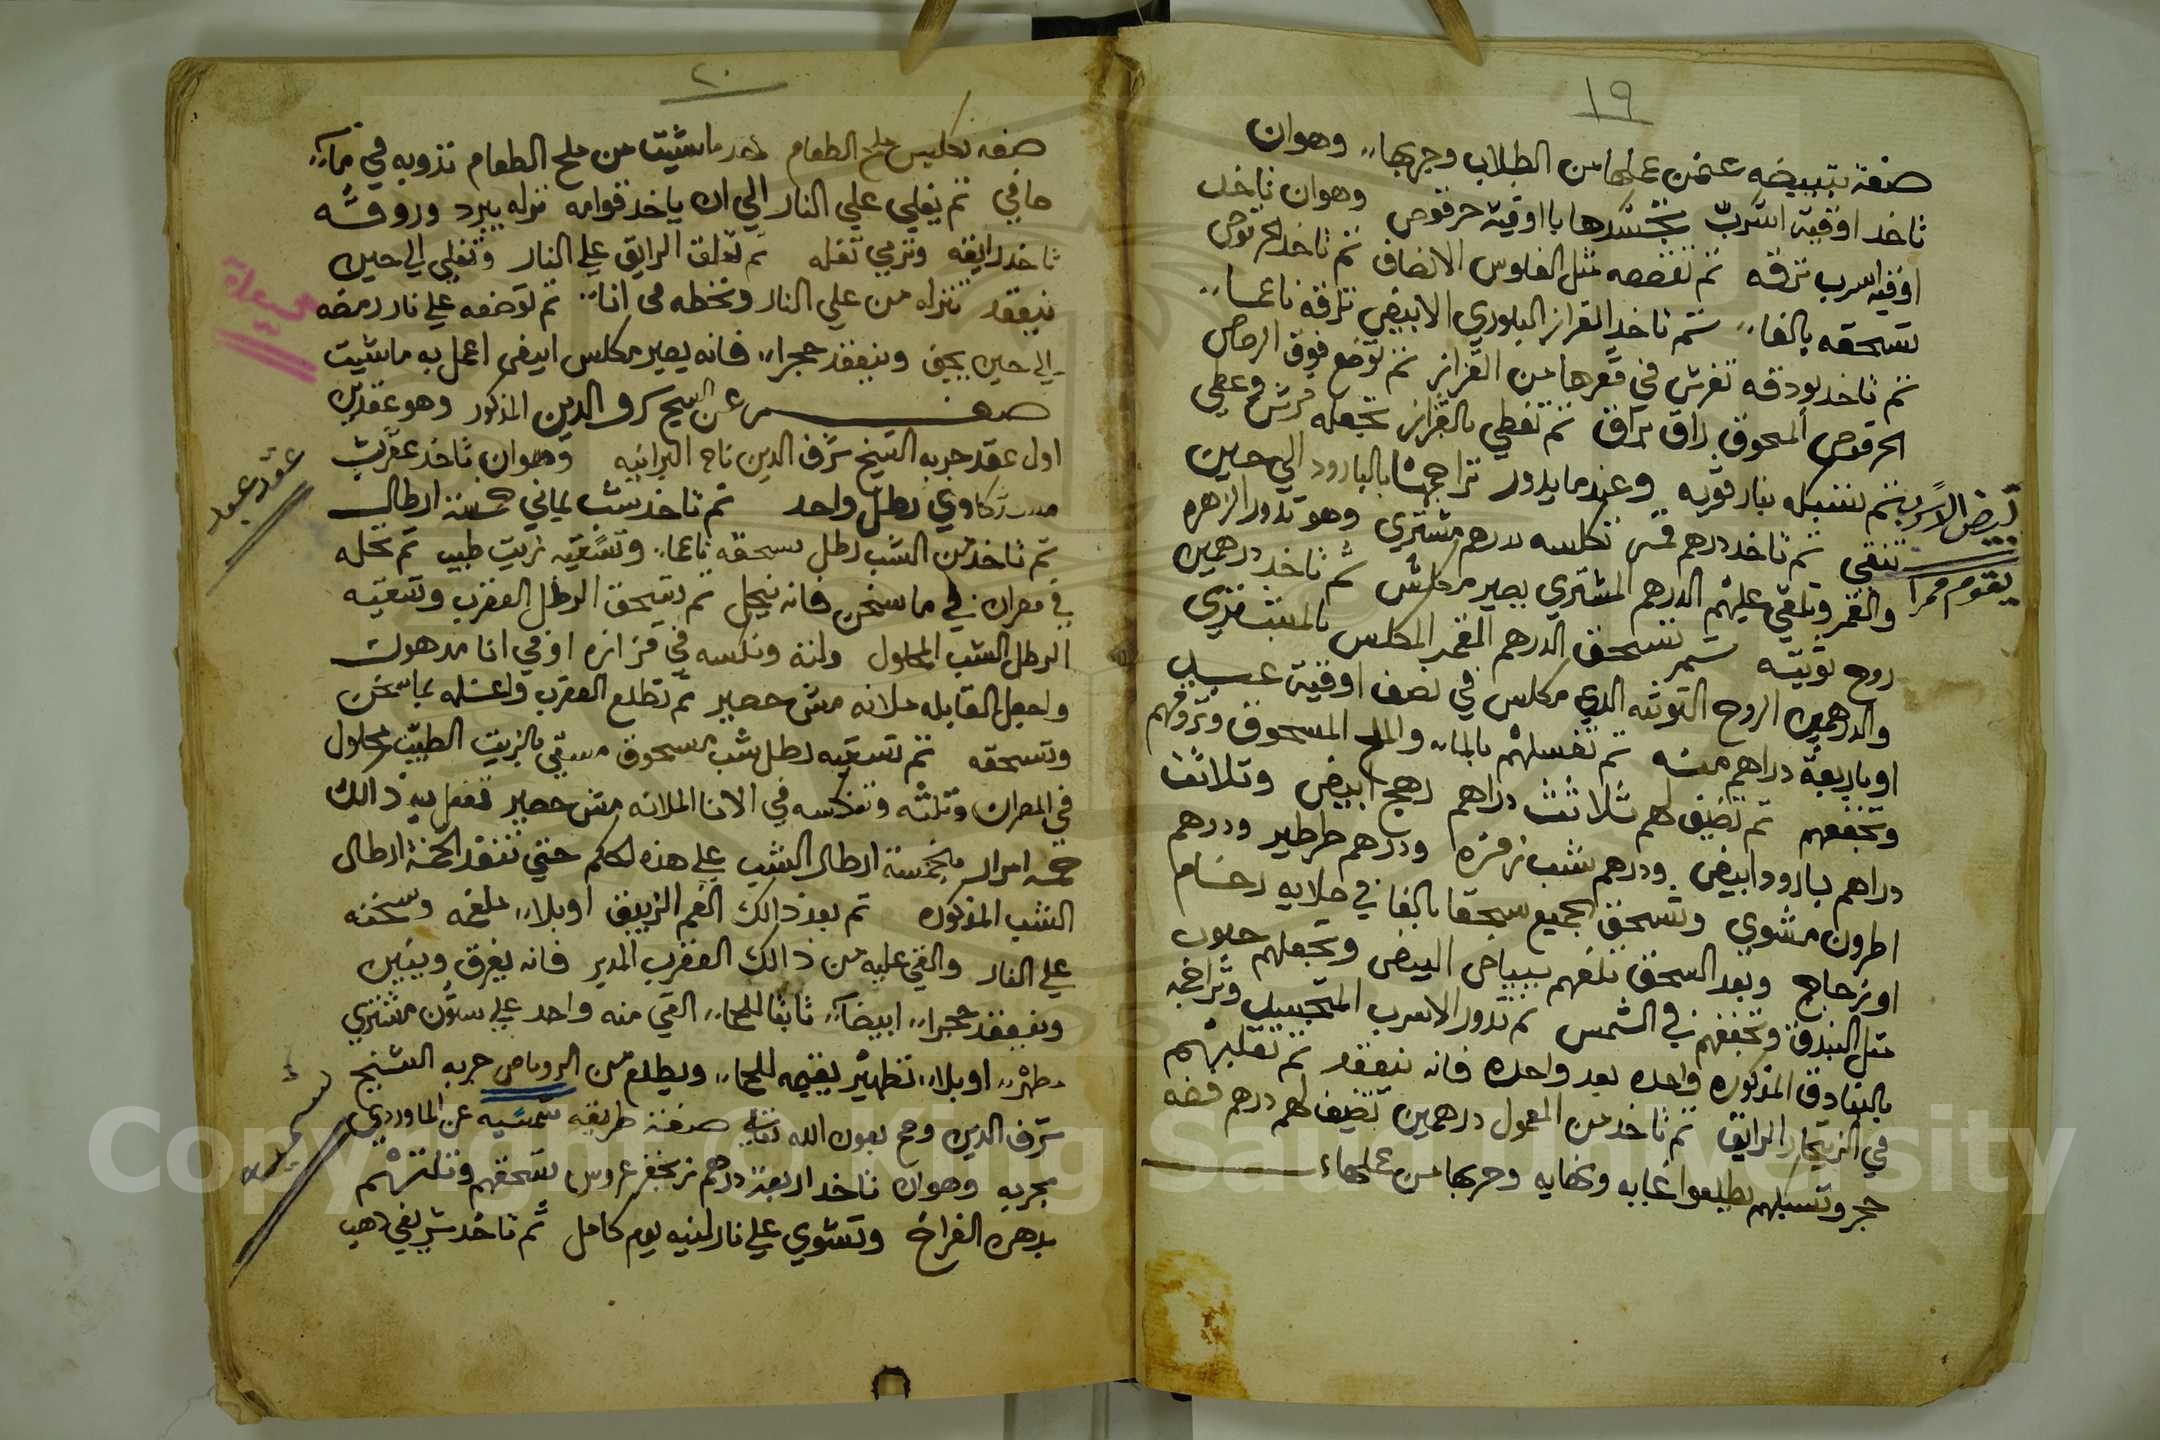 ١٩
صفة تبييضه عن من عملها من الطلاب وجربها وهوان
تاخد اوقية اسرب تجسدها بااوقية حرقوص وهوان تاخد
اوقية اسرب ترقه ثم تقصصه مثل الفلوس الانصاف ثم تاخد الحرقوص
تسحقه بالغا ثم تاخد القزاز البلوري الابيض ترقه ناعما
ثم تاخد بودقه تفرش في قعرها من القزاز ثم توضع فوق الرصاص
الحرقوص المسحوق راق براق ثم تغطي بالقزاز تجعله فرش وغطي
ثم تسبكه بنار قويه وعندما يدور تراجمها بالبارود الي حين
تنقي ثم تاخد درهم قمر تكلسه بدرهم مشتري وهو تدور الزهره
والقمر وتلقي عليهم الدرهم المشتري يصير مكلس ثم تاخد درهمين
روح توتيه ثم تسحق الدرهم القمر المكلس بالمشتري
والدرهمين الروح التوتيه الذي مكلس في نصف اوقية عسل
او باربعة دراهم منه ثم تغسلهم بالماء والملح المسحوق وتروقهم
وتجففهم ثم تضيف لهم ثلاثة دراهم رهج ابيض وثلاث
دراهم بارود ابيض ودرهم شب زفره ودرهم طرطير ودرهم
اطرون مشوي وتسحق الجميع سحقا بالغا في صلايه رخام
او زجاج وبعد السحق تلغهم ببياض البيض وتجعلهم حبوب
مثل البندق وتجففهم في الشمس ثم تدور الاسرب المتجسد وتراجمه
بالبنادق المذكوره واحده بعد واحده فانه ينعقد ثم تقلبهم
في الزيت الرايق ثم تاخد من المعمول درهمين تضيف لهم درهم فضه
حجر وتسبكهم يطلعوا غايه ونهايه وجربها من عملها
تبيض الاسرب
يقوم قمرا
٢٠
صفة تكليس ملح الطعام خد ما شيت من ملح الطعام تذوبه في ماء
صافي ثم يغلي علي النار الي ان ياخد قوامه تنزله يبرد وروقه
تاخد رايقه وترمي تفله ثم تعلق الرايق علي النار وتغلي الي حين
ينعقد تنزله من علي النار وتحطه في انا ثم توضعه علي نار رمضه
الي حين يجف وينعقد حجرا فانه يصير مكلس ابيض اعمل به ما شيت
صفة عن الشيخ شرف الدين المذكور وهو عقدين
اول عقد جربه الشيخ شرف الدين تاج البرانيه وهوان تاخد عقرب
رطل واحد ثم تاخد شب يماني خمسة ارطال
ثم تاخد من الشب رطل تسحقه ناعما وتسقيه زيت طيب ثم تحله
في مصران في ما سخن فانه ينحل ثم تسحق الرطل العقرب وتسقيه
الرطل الشب المحلول ولته ونكسه في قزازه او في انا مدهون
واجعل القابله ملانه مش حصير ثم تطلع العقرب واغسله بماسخن
وتسحقه ثم تسقيه رطل شب مسحوق مسقي بالزيت الطيب محلول
في المصران وتلته وتنكسه في الانا الملانه مش حصير تفعل به ذالك
خمسة امرار بخمسة ارطال الشب علي هذه الحكم حتي تنفد الخمسة ارطال
الشب المذكوره ثم بعد ذالك الغم الزيبق اوبلا ملغمه وسخنه
علي النار والقي عليه من ذالك العقرب المدبر فانه يغرق ويبين
وينعقد حجرا ابيضا ثابتا للحما القي منه واحد علي ستون مشتري
مطهر اوبلا تطهير يقيمه للحما ويطلع من الروباص جربه الشيخ
شرف الدين وصح بعون الله تعالي صفة طريقه شمسيه عن الماوردي
مجربه وهوان تاخد اربعة درهم زنجفر عروس تسحقهم وتلتهم
بدهن الفراخ وتشوي علي نار لينه يوم كامل ثم تاخد شريفي دهب
عقد عبد
شمسيه